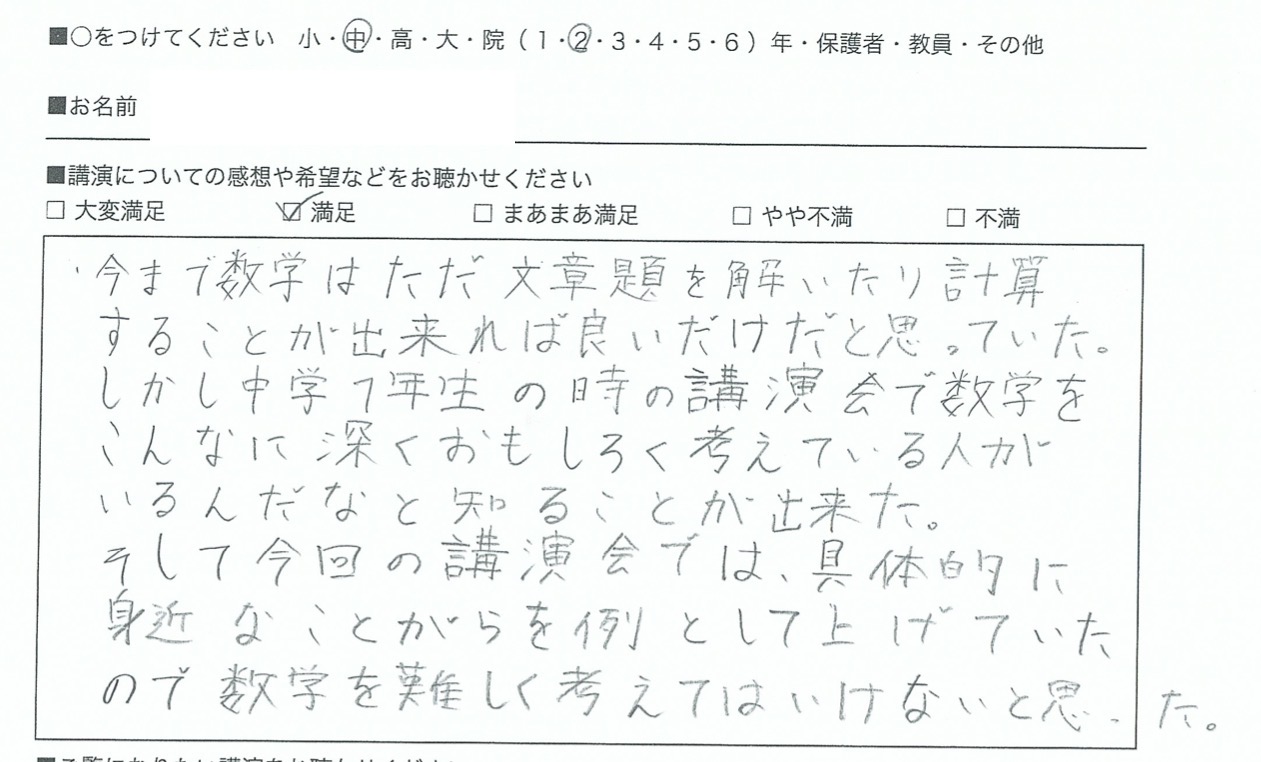 ■○をつけてください 小・中・高・大・院(1・2・3・4・5・6)年・保護者・教員・その他
■お名前
■講演についての感想や希望などをお聴かせください
□ 大変満足 ☑ 満足 □ まあまあ満足 □ やや不満 □ 不満
・今まで数学はただ文章題を解いたり計算
することが出来れば良いだけだと思っていた。
しかし中学1年生の時の講演会で数学を
こんなに深くおもしろく考えている人が
いるんだなと知ることが出来た。
そして今回の講演会では、具体的に
身近なことがらを例として上げていた
ので数学を難しく考えてはいけないと思った。